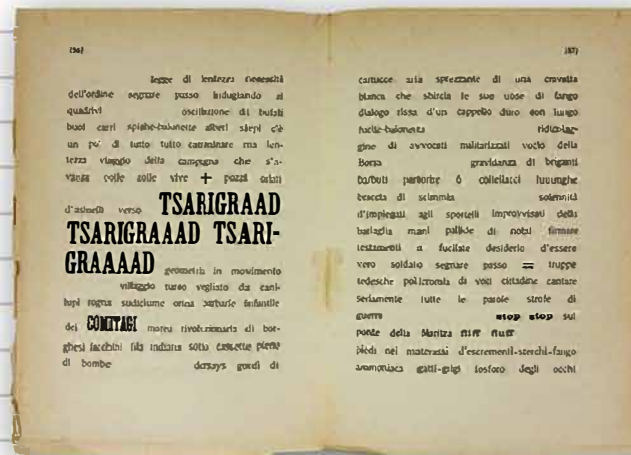 (56)
legge di lentezza necessità
dell'ordine segnare passo indugiando ai
quadrivi oscillazione di bufali
buoi carri spighe-baionette alberi siepi c'è
un po' di tutto tutto camminare ma len-
tezza viaggio della campagna che s'a-
vanza colle zolle vive + pozzi orlati
d'asinelli verso TSARIGRAAD
TSARIGRAAAD TSARI-
GRAAAAD geometria in movimento
villaggio turco vegliato da cani-
lupi rogna sudiciume orina barbarie infantile
dei COMITAGI marea rivoluzionaria di bor-
ghesi facchini fila indiana sotto cassette piene
di bombe gonfi di
(57)
cartucce aria sprezzante di una cravatta
bianca che sbircia le sue uose di fango
dialogo rissa d'un cappello duro con lungo
fucile-baionetta ridicolag-
gine di avvocati militarizzati vocio della
Borsa gravidanza di briganti
barbuti partorire 6 coltellacci luuunghe
braccia di scimmia solennità
d'impiegati agli sportelli improvvisati della
battaglia mani pallide di notai firmare
testamenti a fucilate desiderio d'essere
vero soldato segnare passo = truppe
tedesche policromia di voci cittadine cantare
seriamente tutte le parole strofe di
guerra stop stop sul
ponte della Maritza fliff fluff
piedi nei materassi d'escrementi-sterchi-fango
ammoniaca gatti-grigi fosforo degli occhi